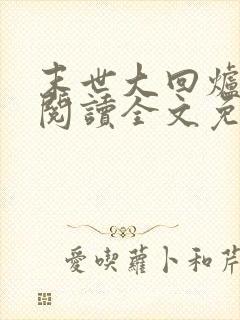 末世大回爐
閱讀全文免
愛喫蘿卜和芹